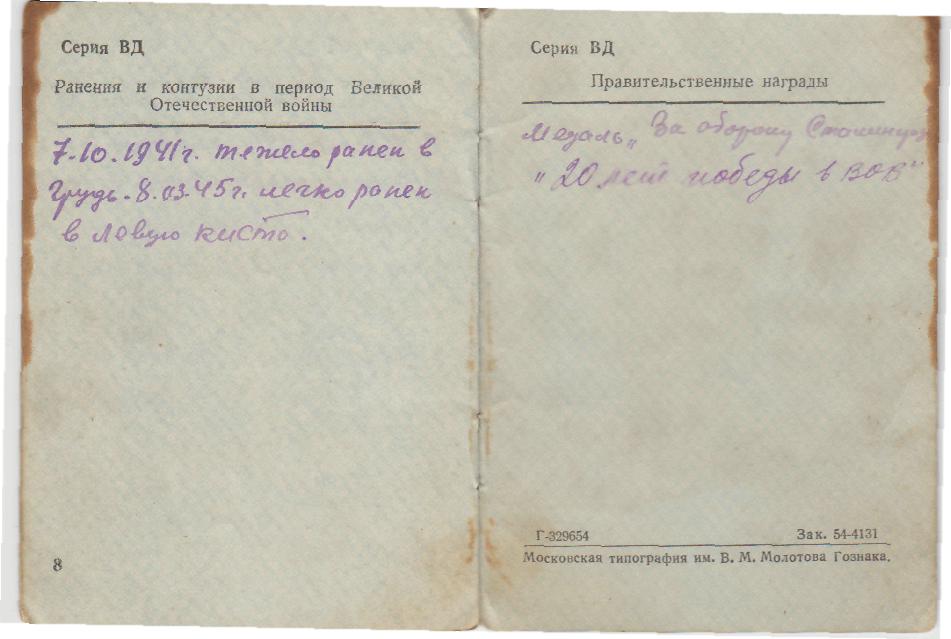 Серия ВД
Ранения и контузии в период Великой
Отечественной войны
7.10.1941г. тяжело ранен в
грудь. 8.03.45г. легко ранен
в левую кисть.
8
Серия ВД
Правительственные награды
Медаль „За оборону Сталинград
"20 лет победы в ВОВ"
Г-329654 Зак. 54-4131
Московская типография им. В. М. Молотова Гознака.